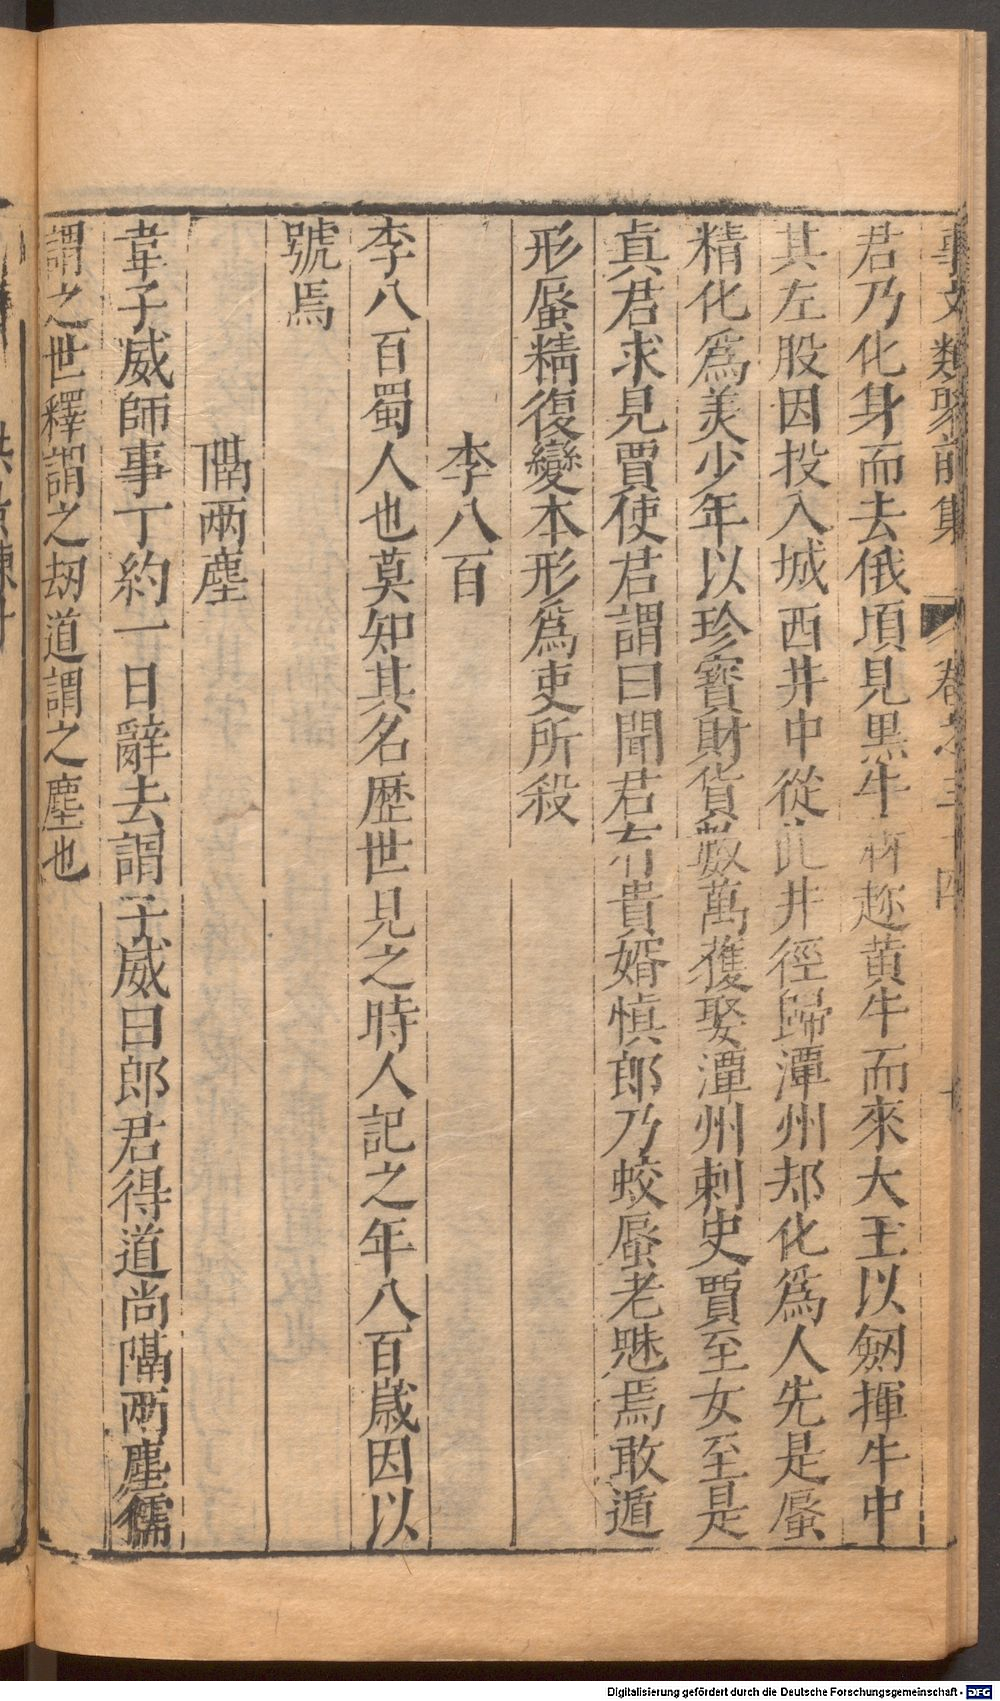 事文類聚前集 卷之三十四
君乃化身而去俄頃見黒牛奔趂黄牛而來大王以劒揮牛中
其左股因投入城西井中從此井徑歸潭州却化爲人先是蜃
精化爲美少年以珍寶財貨數萬獲娶潭州刺史賈至女至是
真君求見賈使君謂曰聞君有貴婿慎郎乃蛟蜃老魅焉敢遁
形蜃精復變本形爲吏所殺
李八百
李八百蜀人也莫知其名歴世見之時人記之年八百歳因以
號焉
隔兩塵
韋子威師事丁約一日辭去謂子威曰郎君得道尚隔兩塵儒
謂之世釋謂之刼道謂之塵也
Digitalisierung gefördert durch die Deutsche Forschungsgemeinschaft - DFG